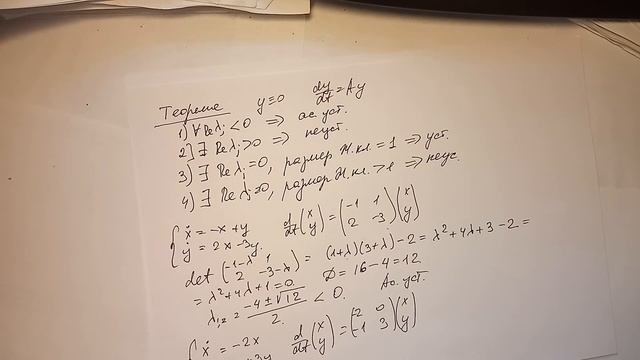 Теорема y≡0 dy/dt = Ay
1) ∀ Re λj < 0 ⇒ ас. уст.
2) ∃ Re λj > 0 ⇒ неуст.
3) ∃ Re λj = 0, размер Ж.кл. = 1 ⇒ уст.
4) ∃ Re λj = 0, размер Ж.кл. > 1 ⇒ неус.
{ ẋ = -x+y d/dt (x y) = (-1 1 2 -3)(x y)
ẏ = 2x-3y.
det (-1-λ 1 2 -3-λ) = (1+λ)(3+λ) - 2 = λ² + 4λ + 3 - 2 =
= λ² + 4λ + 1 = 0 D = 16 - 4 = 12
λ1,2 = (-4 ± √12)/2 < 0. Ас. уст.
{ ẋ = -2x d/dt (x y) = 0 3)(x y)